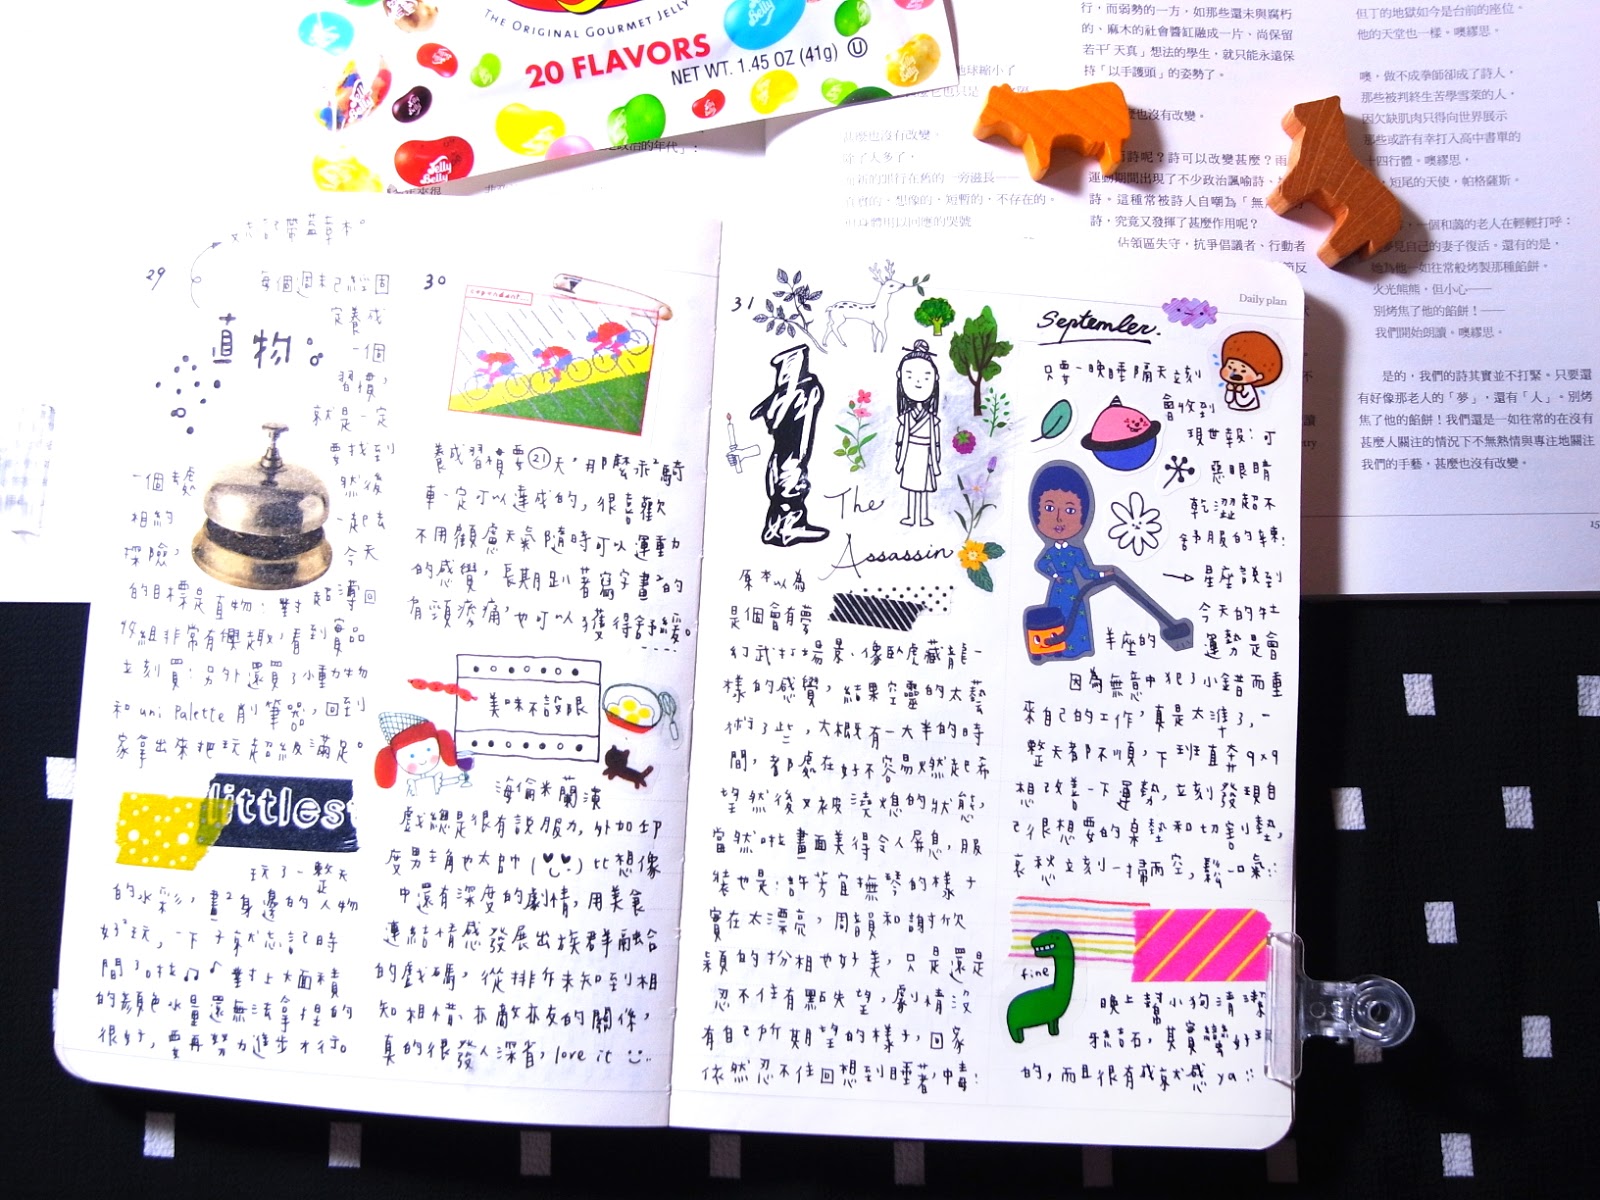 THE ORIGINAL GOURMET JELLY
20 FLAVORS
NET WT. 1.45 OZ (41g)
Jelly Belly
行，而弱勢的一方，如那些還未與腐朽
的、麻木的社會醬缸融成一片、尚保留
若干「天真」想法的學生，就只能永遠保
持「以手護頭」的姿勢了。
麼也沒有改變。
詩呢？詩可以改變甚麼？雨
運動期間出現了不少政治諷喻詩、
詩。這種常被詩人自嘲為「無
詩，究竟又發揮了甚麼作用呢？
佔領區失守，抗爭倡議者、行動者
但丁的地獄如今是台前的座位。
他的天堂也一樣。噢繆思。
噢，做不成拳師卻成了詩人，
那些被判終生苦學雪萊的人，
因欠缺肌肉只得向世界展示
那些或許有幸打入高中書單的
十四行體。噢繆思，
短尾的天使，帕格薩斯。
一個和藹的老人在輕輕打呼：
夢見自己的妻子復活。還有的是，
她為他一如往常般烤製那種餡餅。
火光熊熊，但小心——
別烤焦了他的餡餅！——
我們開始朗讀。噢繆思。
是的，我們的詩其實並不打緊。只要還
有好像那老人的「夢」，還有「人」。別烤
焦了他的餡餅！我們還是一如往常的在沒有
甚麼人關注的情況下不無熱情與專注地關注
我們的手藝，甚麼也沒有改變。
甚麼也沒有改變。
除了人多了，
29
每個週末已經固
定養成
一個
習慣，
就是一定
要找到
一個去處
然後
相約
一起去
探險，
今天
的目標是直物：對超薄回
紋組非常有興趣，看到實品
立刻買：另外還買了小動物
和 uni Palette 削筆器，回到
家拿出來把玩超級滿足。
直物。
littlest
玩了一整天
的水彩，畫身邊的人物
好玩，一下子就忘記時
間了啦♫♪ 對上大面積
的顏色水量還無法拿捏的
很好，要再努力進步才行。
30
養成習慣要21天，那麼乖乖騎
車一定可以達成的，很喜歡
不用顧慮天氣隨時可以運動
的感覺，長期趴著寫字畫畫的
肩頸痠痛，也可以獲得舒緩。
美味不設限
海倫米蘭演
戲總是很有說服力，外加印
度男主角也太帥 比想像
中還有深度的劇情，用美食
連結情感發展出族群融合
的戲碼，從排斥未知到相
知相惜、亦敵亦友的關係，
真的很發人深省，love it
31
聶隱娘
The
Assassin
原本以為
是個會有夢
幻武打場景、像臥虎藏龍一
樣的感覺，結果空靈的太藝
術了些，大概有一大半的時
間，都處在好不容易燃起希
望然後又被澆熄的狀態，
當然啦畫面美得令人屏息，服
裝也是：許芳宜撫琴的樣子
實在太漂亮，周韻和謝欣
穎的扮相也好美，只是還是
忍不住有點失望，劇情沒
有自己所期望的樣子，回家
依然忍不住回想到睡著，中毒：
Daily plan
September.
只要一晚睡隔天立刻
會收到
現世報：可
惡眼睛
乾澀超不
舒服的辣：
星座說到
今天的牡
羊座的
運勢是會
因為無意中犯了小錯而重
來自己的工作，真是太準了，一
整天都不順，下班直奔9x9
想改善一下運勢，立刻發現自
己很想要的桌墊和切割墊，
哀愁立刻一掃而空，鬆一口氣：
fine
晚上幫小狗清潔
牙結石，其實蠻好玩
的，而且很有成就感 ya